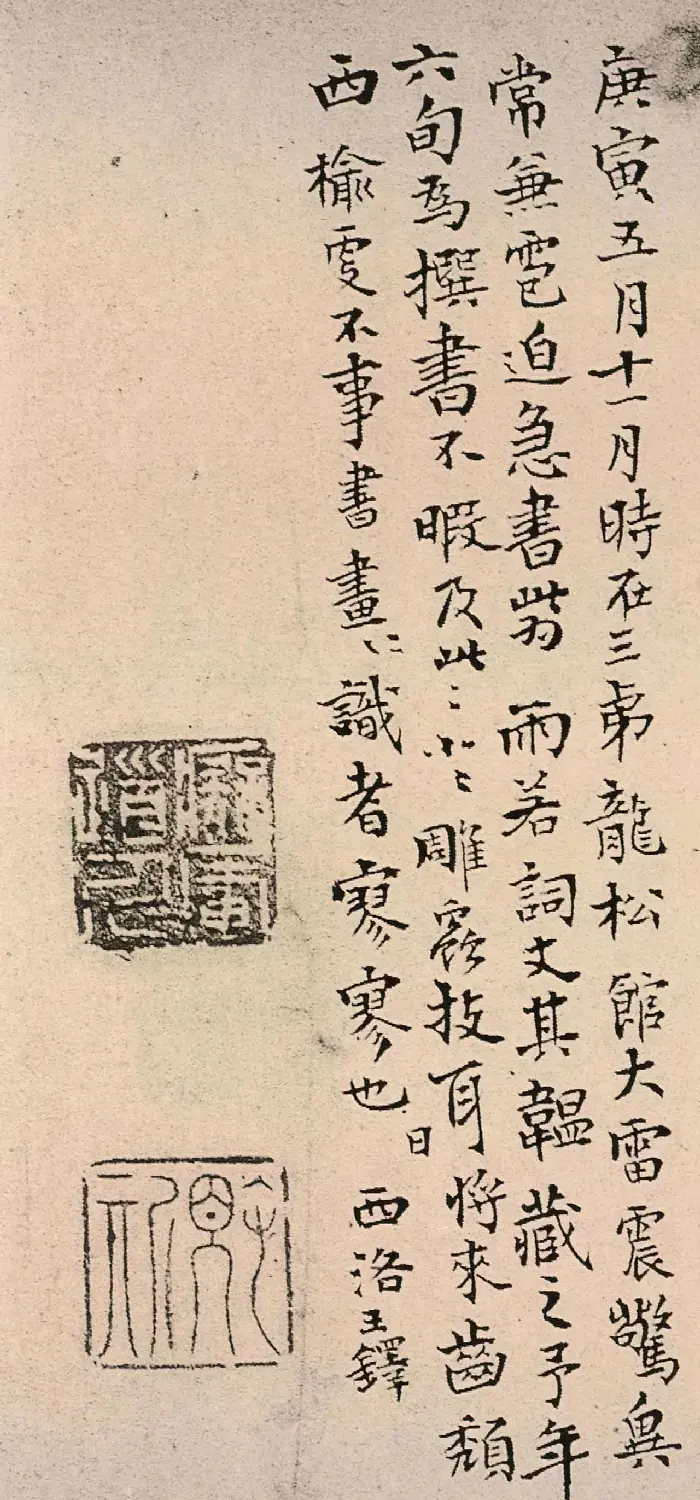 庚寅五月十一月時在三弟龍松館大雷震驚異
常兼雹迫急書此為雨若詞丈其韞藏之予年
六旬為撰書不暇及此〻小〻雕蟲技耳將來齒頹
日
西榆更不事書畫〻識者寥寥也 西洛王鐸